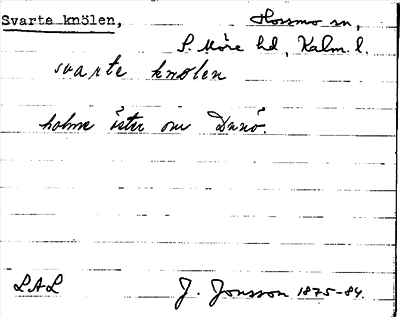 Svarte knölen,
Hossmo sn,
S. Möre hd, Kalm. l.
svarte knölen
holme öster om Dunö.
LAL
J. Jonsson 1875-84.